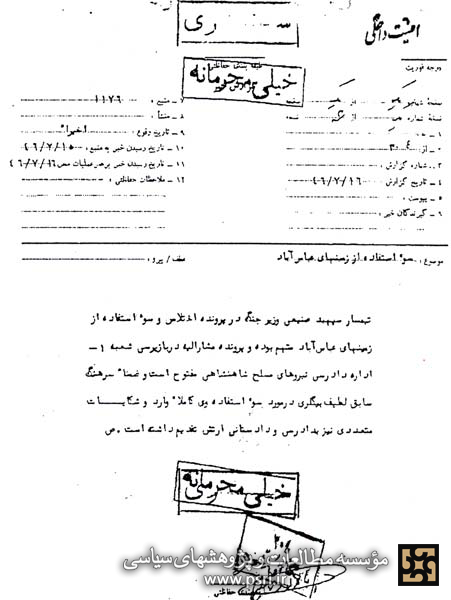 سـری
امنیت داخلی
درجه فوریت
طبقه بندی حفاظتی
خیلی محرمانه
۷ - منبع : ۱۱۷۶
۸ - منشأ :
۹ - تاریخ وقوع : اخیرا"
۱۰ - تاریخ رسیدن خبر به منبع : ۴۶/۷/۱۵
۱۱ - تاریخ رسیدن خبر برهبر عملیات محل ۴۶/۷/۱۶
۱۲ - ملاحظات حفاظتی :
صفحه شماره
نسخه شماره
۲ - از
۳ - شماره گزارش :
۴ - تاریخ گزارش : ۴۶/۷/۱۶
۵ - پیوست :
۶ - گیرندگان خبر :
موضوع : سوء استفاده از زمینهای عباس آباد
عطف / پیرو :
تیمسار سپهبد صنیعی وزیر جنگ در پرونده اختلاس و سوء استفاده از
زمینهای عباس آباد متهم بوده و پرونده مشارالیه در بازپرسی شعبه ۱-
اداره دادرسی نیروهای مسلح شاهنشاهی مفتوح است و ضمنا" سرهنگ
سابق لطیف بیگلری در مورد سوء استفاده وی کاملا" وارد و شکایــات
متعددی نیز بدادرسی و دادستانی ارتش تقدیم داشته است . ص
خیلی محرمانه
موسسه مطالعات و پژوهشهای سیاسی
www.psri.ir